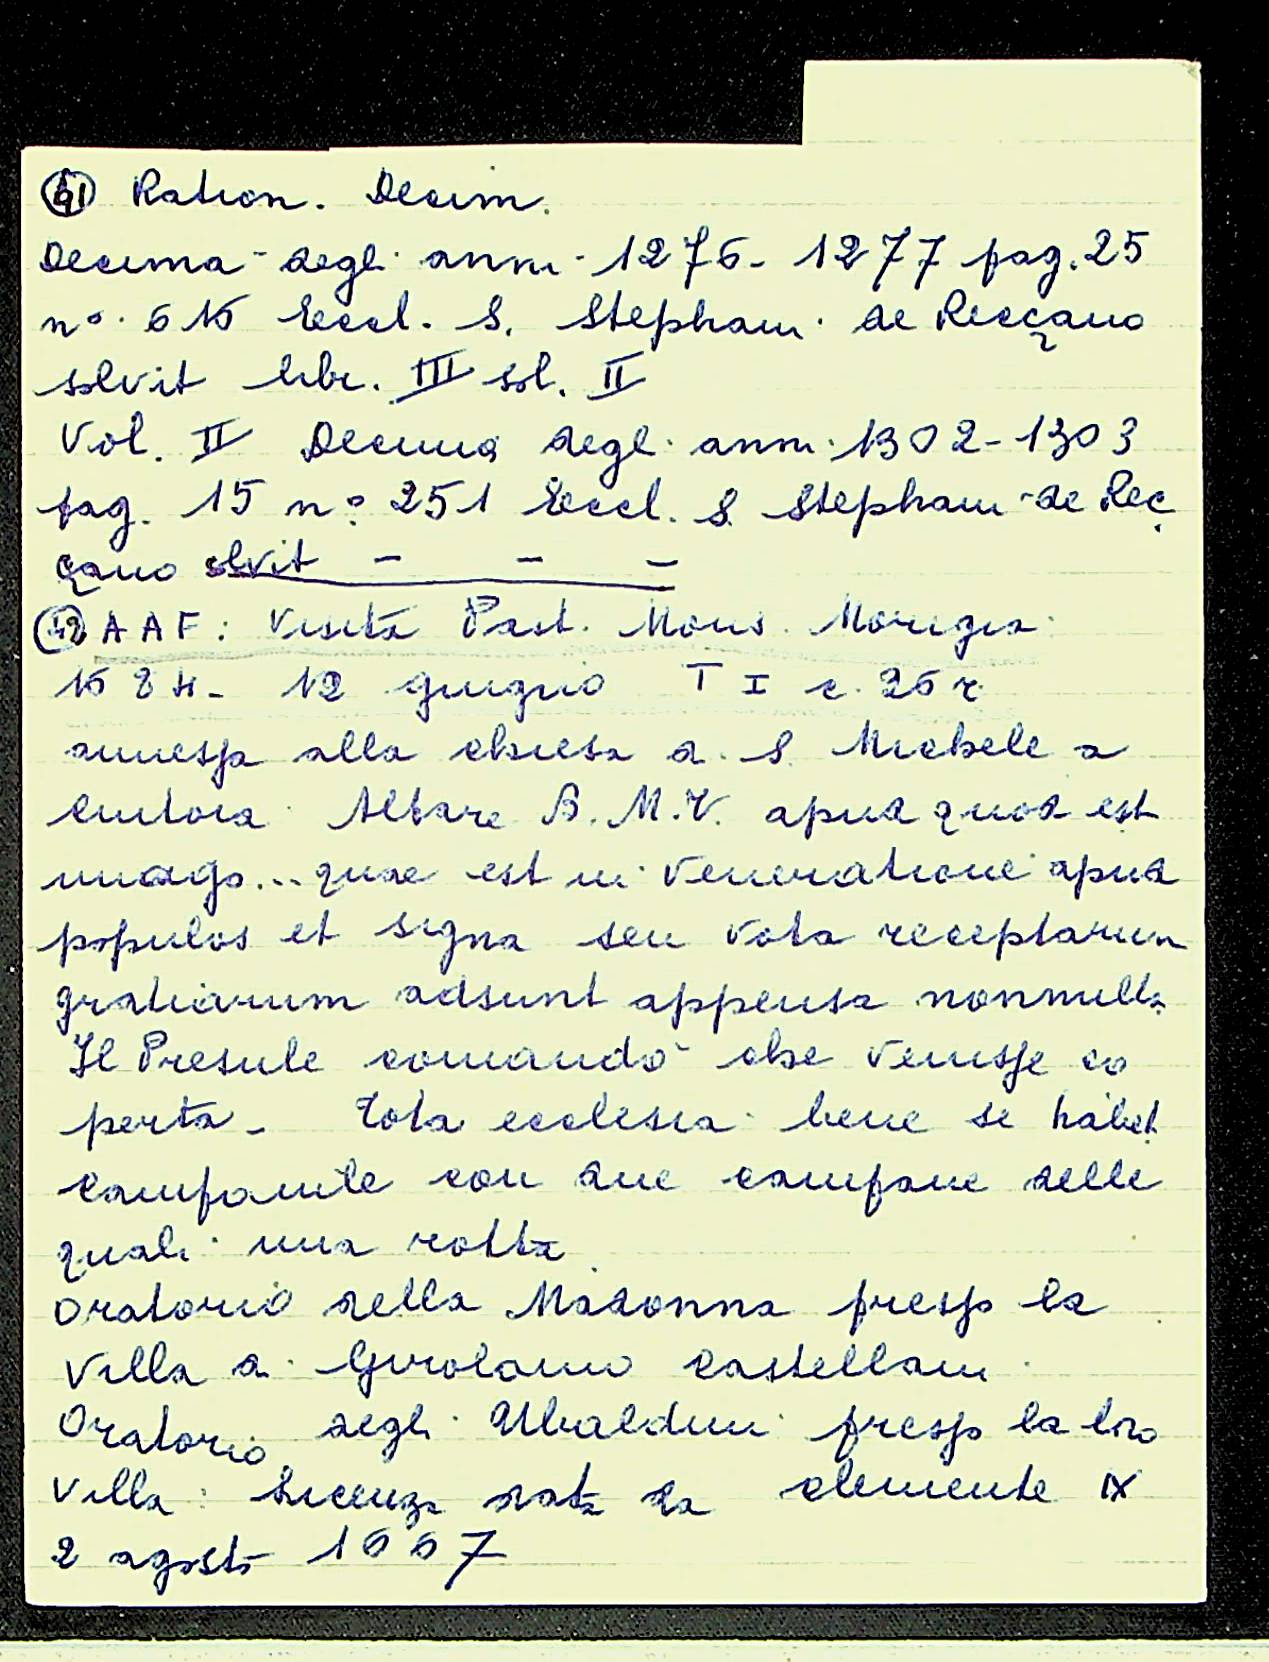 41 Ration. Decim.
Decima degli anni 1276-1277 pag. 25
n° 616 Eccl. S. Stephani de Recçano
solvit libr. III sol. II
Vol. II Decima degli anni 1302-1303
pag. 15 n° 251 Eccl. S. Stephani de Rec
çano solvit - - -
42 AAF: Visita Past. Mons. Morigia
1684 - 12 giugno T I c. 26 r
annessa alla chiesa di S. Michele a
Cintoia Altare B.M.V. apud quod est
imago... quae est in veneratione apud
populos et signa seu vota receptarum
gratiarum adsunt appensa nonnulla
Il Presule comandò che venisse co
perta - Tota ecclesia bene se habet
campanile con due campane delle
quali una rotta
Oratorio della Madonna presso la
villa di Girolamo Castellani
Oratorio degli Ubaldini presso la loro
villa: licenza data da Clemente IX
2 agosto 1667